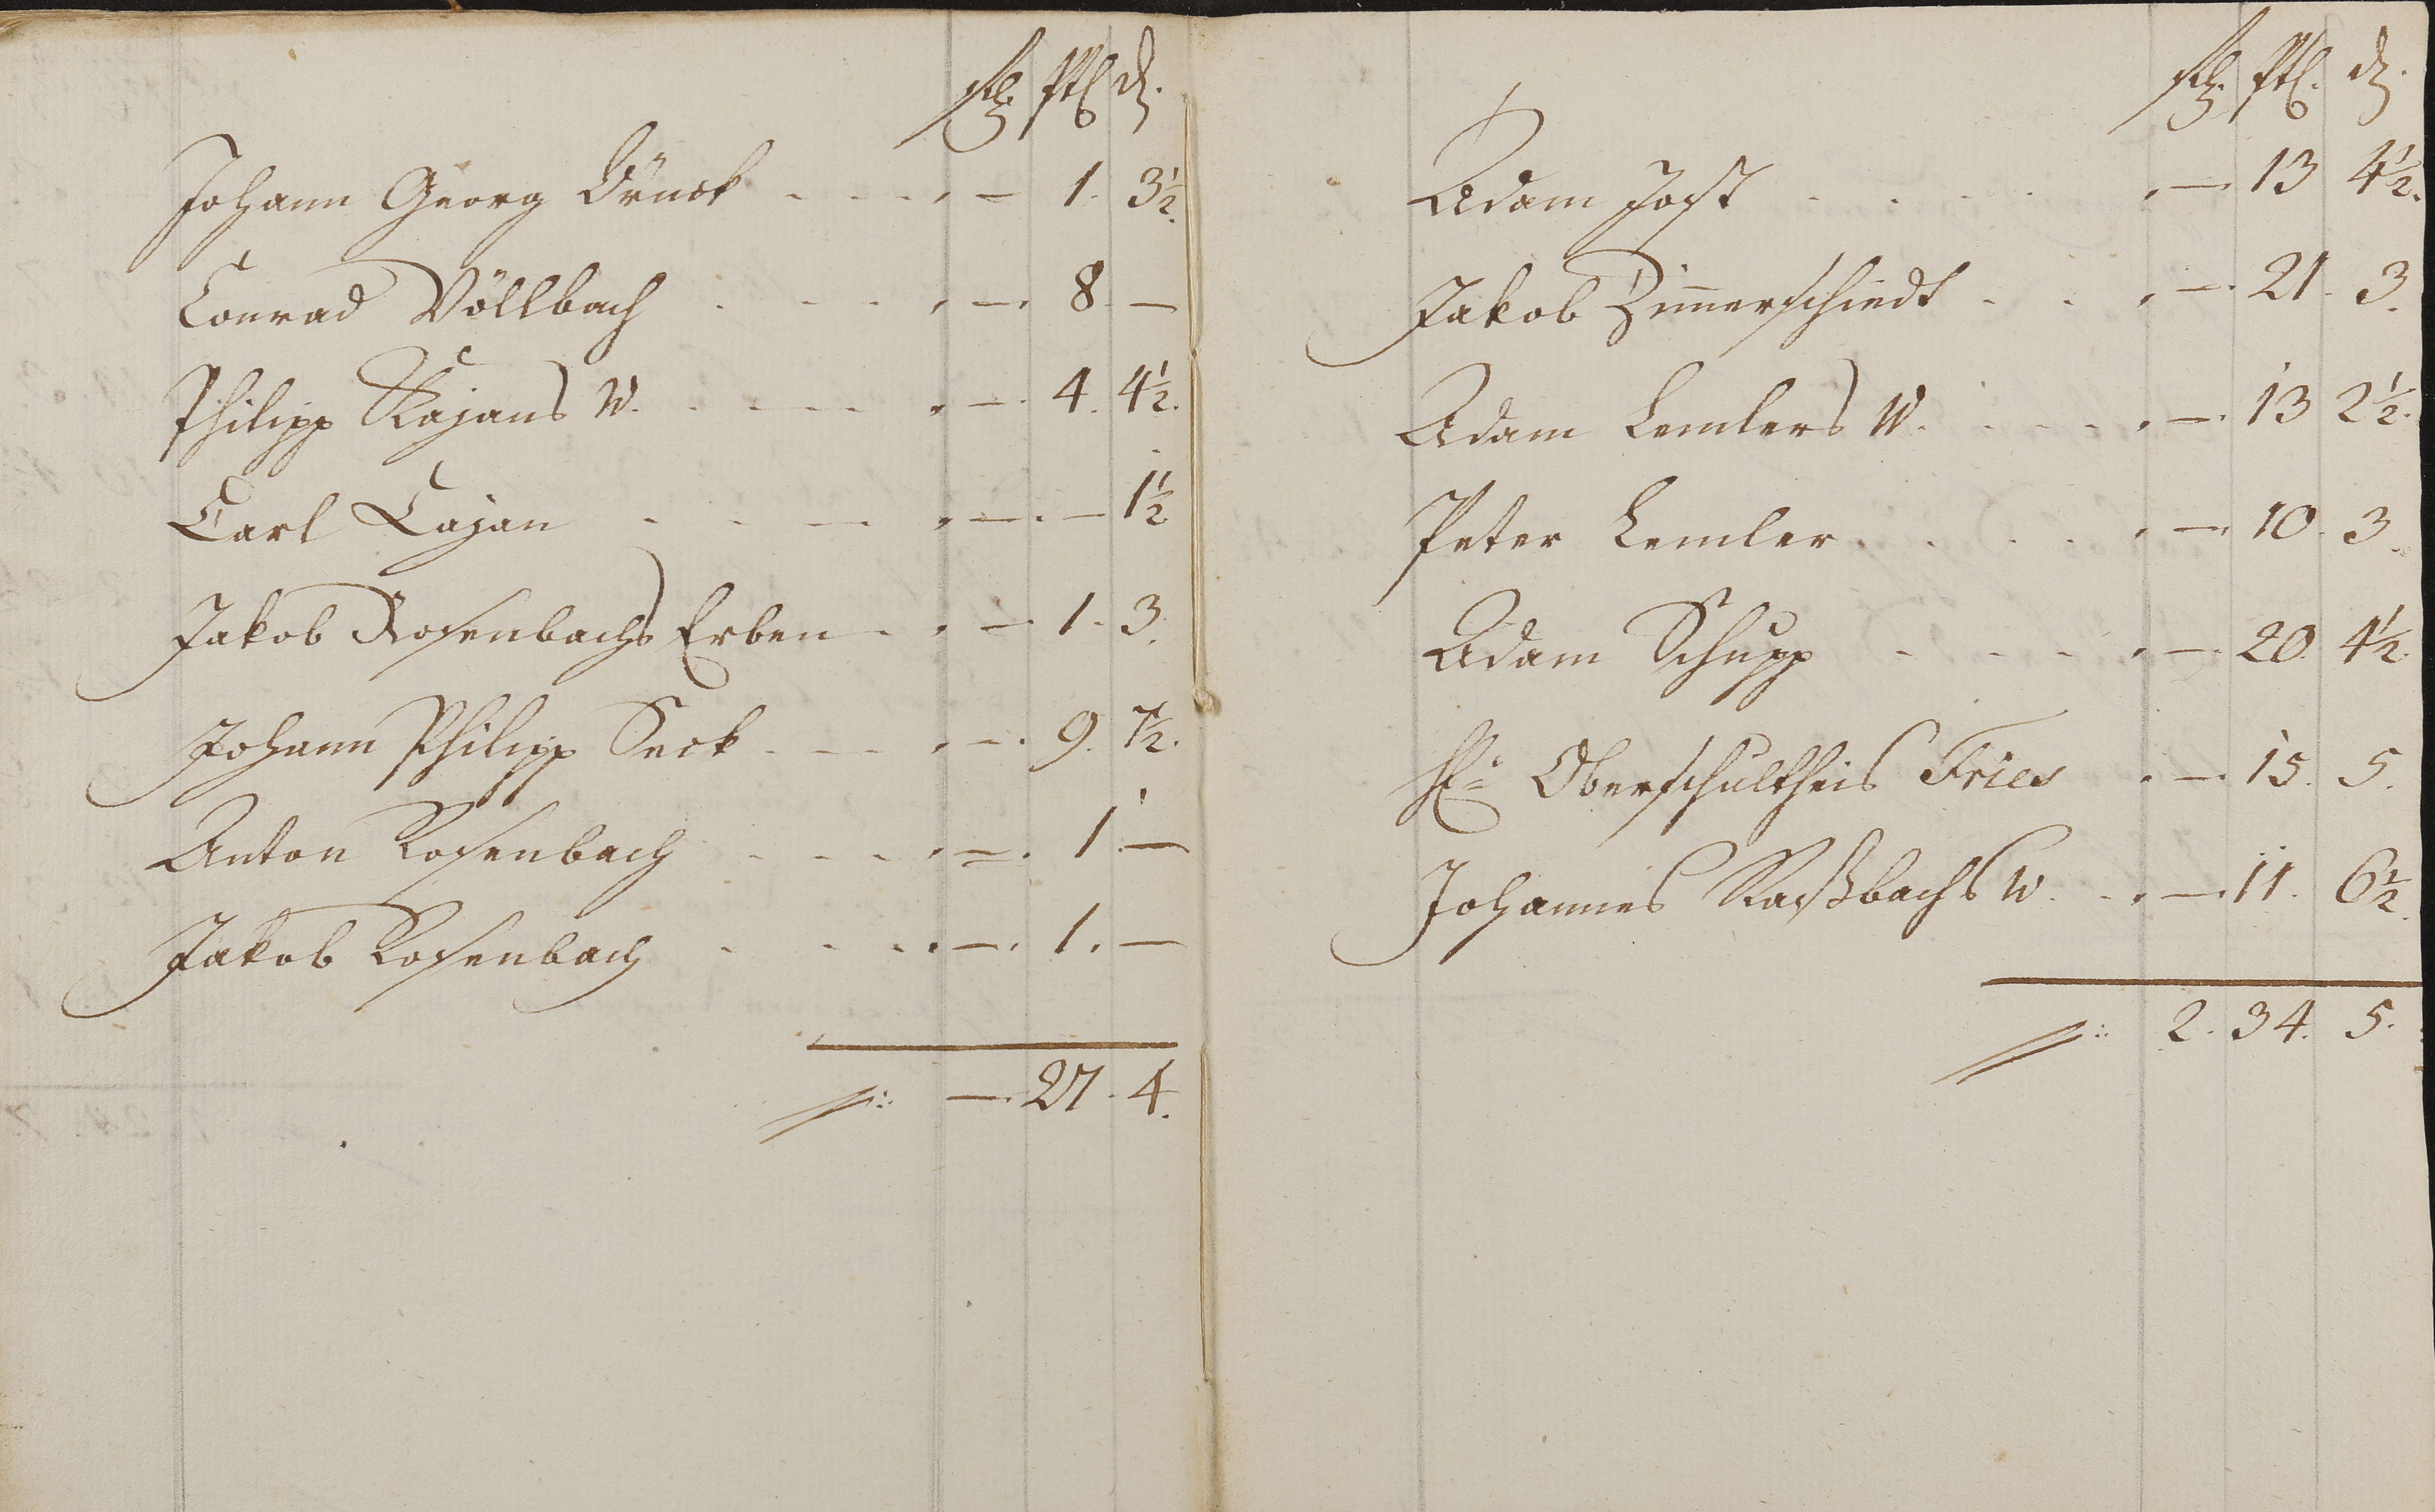 Rthlr. Stbr. d.
Johann Georg Brück - - - . - 1. 3½.
Conrad Völlbach . - - . - . 8. -
Philipp Kajans W. . - - . - . 4. 4½.
Carl Cajan . . - . - . - 1½
Jakob Rosenbachs Erben - . - 1. 3.
Johann Philipp Seck - - - . - . 9. 7½.
Anton Rosenbach - - - . - . 1. -
Jakob Rosenbach - - - . - . 1. -
- . 27. 4.
13 4½.
Adam Jost . . . . . -
Jakob Zimerschiedt . . . - . 21. 3.
Adam Lemlers W. . - - . - . 13 2½.
Peter Lemler . . . . - . 10. 3.
Adam Schupp - - - . - . 20. 4½.
Hr. Oberschultheis Fries . - . 15. 5.
Johannes Raßbachs W. . - . - . 11. 6½.
2. 34. 5.